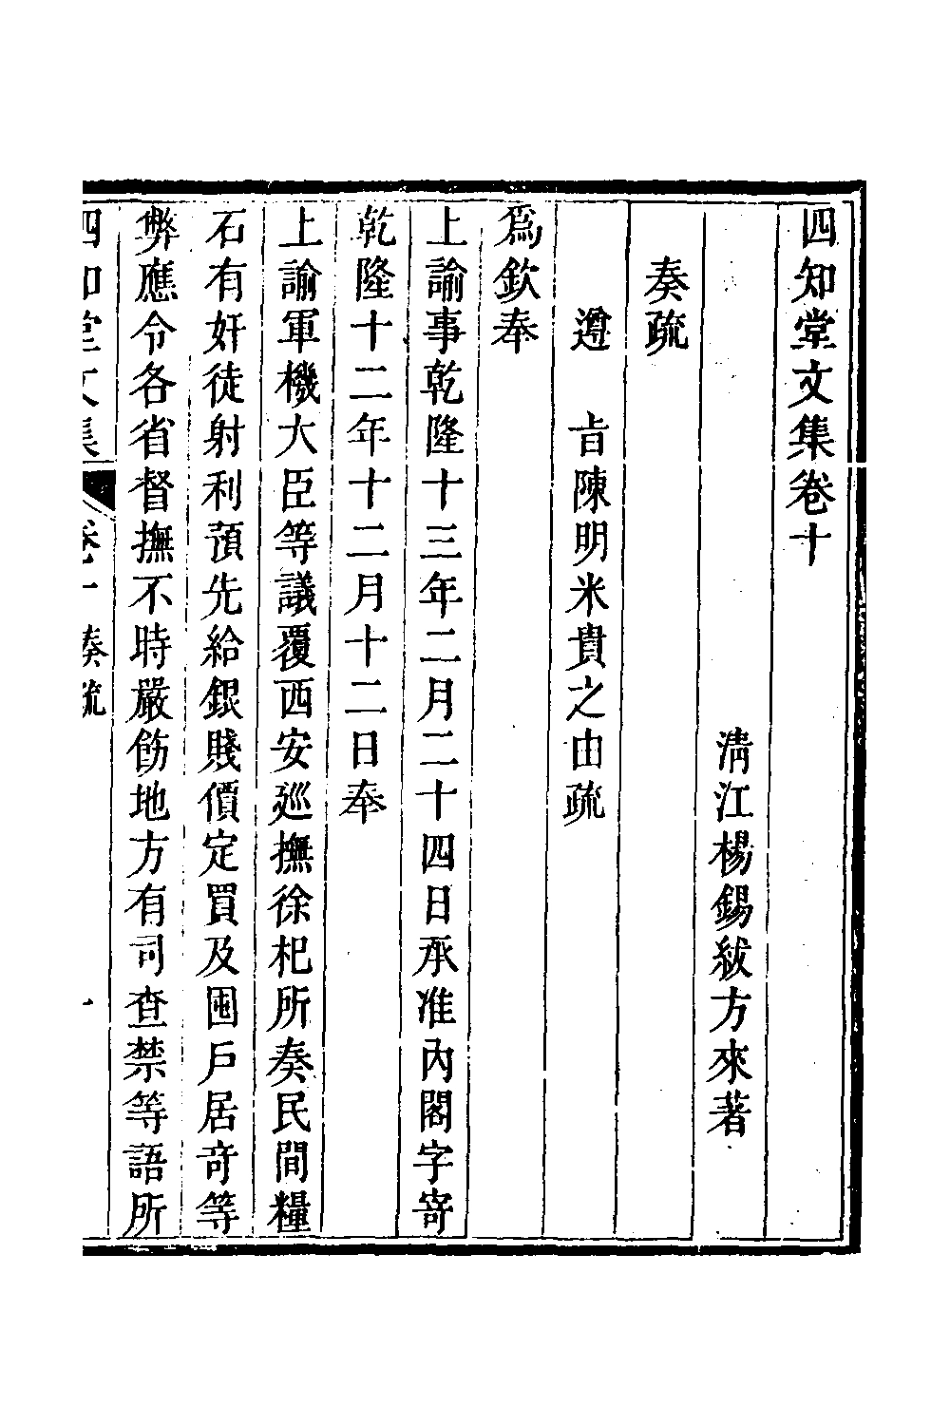 四知堂文集卷十
淸江楊錫紱方來著
奏疏
遵　旨陳明米貴之由疏
爲欽奉
上諭事乾隆十三年二月二十四日承准內閣字寄
乾隆十二年十二月十二日奉
上諭軍機大臣等議覆西安巡撫徐杞所奏民間糧
石有奸徒射利預先給銀賤價定買及囤戶居奇等
弊應令各省督撫不時嚴飭地方有司查禁等語所
四知堂文集　卷十　奏疏　一